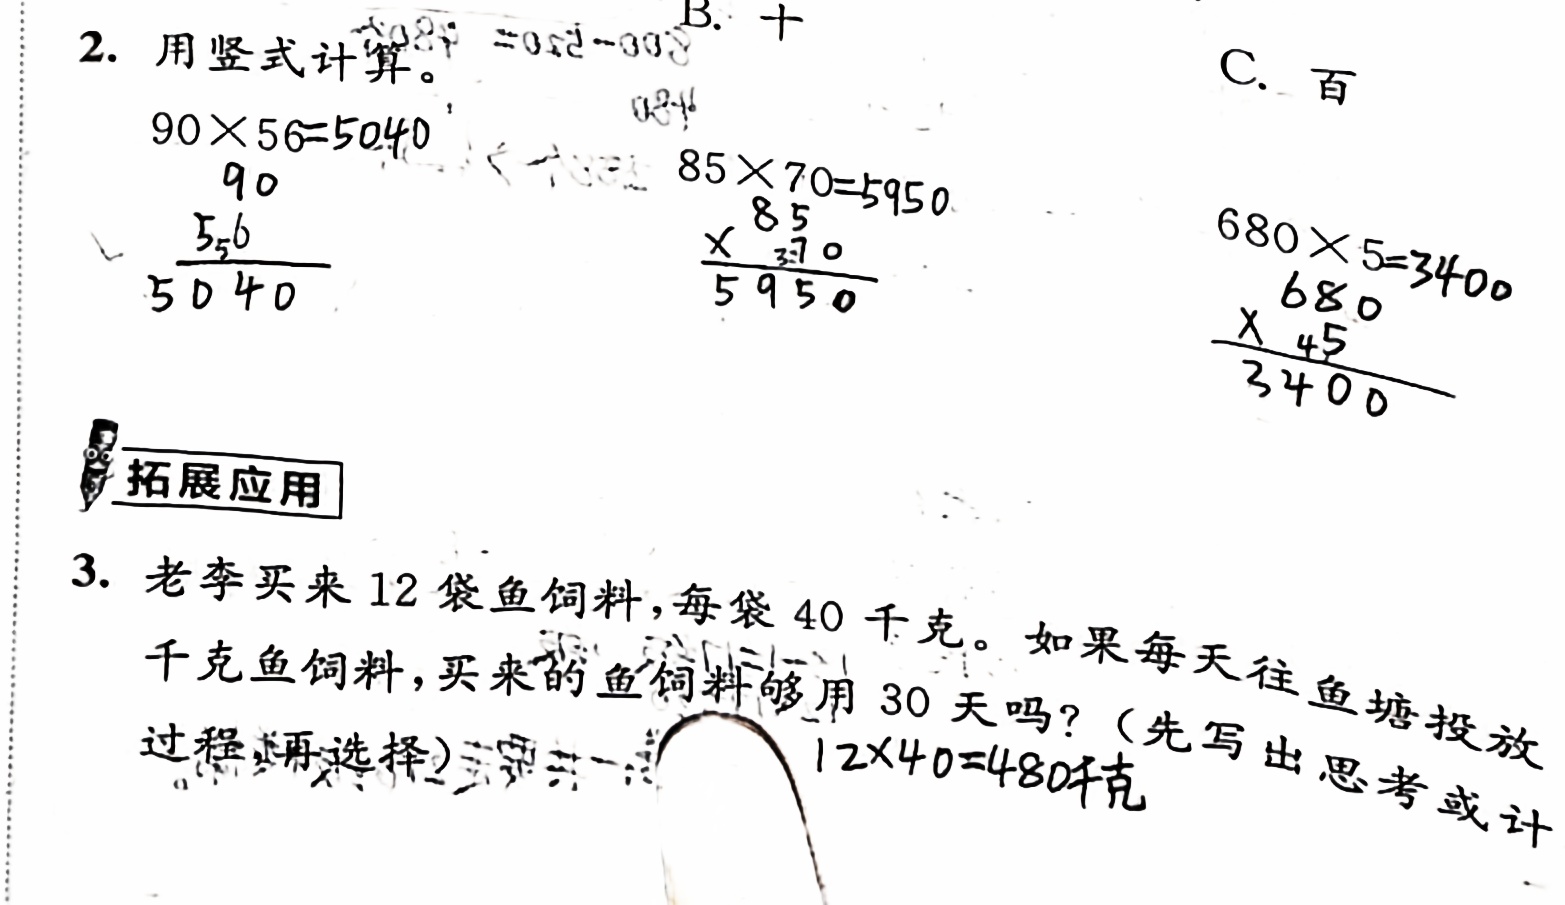 B. 十
C. 百
2. 用竖式计算。
90×56=5040
90
556
5040
85×70=5950
85
× 370
5950
680×5=3400
680
× 45
3400
拓展应用
3. 老李买来 12 袋鱼饲料,每袋 40 千克。如果每天往鱼塘投放
千克鱼饲料,买来的鱼饲料够用 30 天吗?(先写出思考或计
过程,再选择)
12×40=480千克